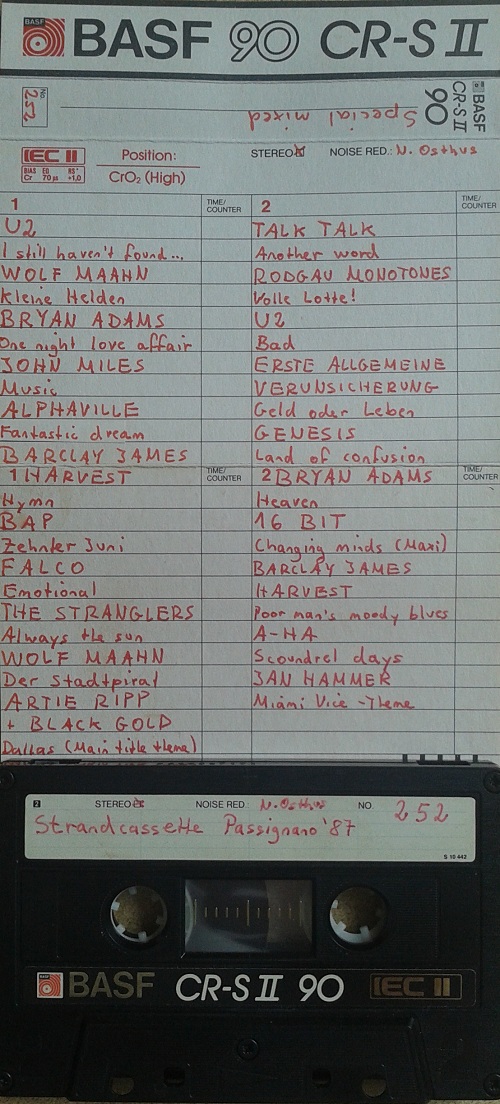 BASF
BASF 90 CR-S II
BASF
CR-S II
90
Special mixed
No
252
IEC II
BIAS EQ RS*
Cr 70 µs +1,0
Position:
CrO₂ (High)
STEREO NOISE RED.: N. Osthus
1 TIME/COUNTER
U2
I still haven't found...
WOLF MAAHN
Kleine Helden
BRYAN ADAMS
One night love affair
JOHN MILES
Music
ALPHAVILLE
Fantastic dream
BARCLAY JAMES
1 HARVEST TIME/COUNTER
Hymn
BAP
Zehnter Juni
FALCO
Emotional
THE STRANGLERS
Always the sun
WOLF MAAHN
Der Stadtpirat
ARTIE RIPP
+ BLACK GOLD
Dallas (Main title theme)
2 TIME/COUNTER
TALK TALK
Another word
RODGAU MONOTONES
Volle Lotte!
U2
Bad
ERSTE ALLGEMEINE
VERUNSICHERUNG
Geld oder Leben
GENESIS
Land of confusion
2 BRYAN ADAMS TIME/COUNTER
Heaven
16 BIT
Changing minds (Maxi)
BARCLAY JAMES
HARVEST
Poor man's moody blues
A-HA
Scoundrel days
JAN HAMMER
Miami Vice - Theme
2 STEREO NOISE RED.: N. Osthus NO. 252
Strandcassette Passignano '87
S 10 442
BASF
BASF CR-S II 90 IEC II